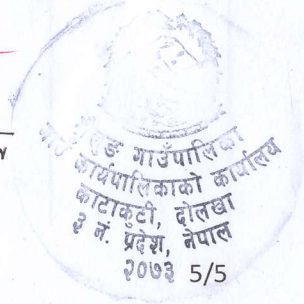 गाउँपालिका
कार्यपालिकाको कार्यालय
काटाकुटी, दोलखा
३ नं. प्रदेश, नेपाल
२०७३ 5/5